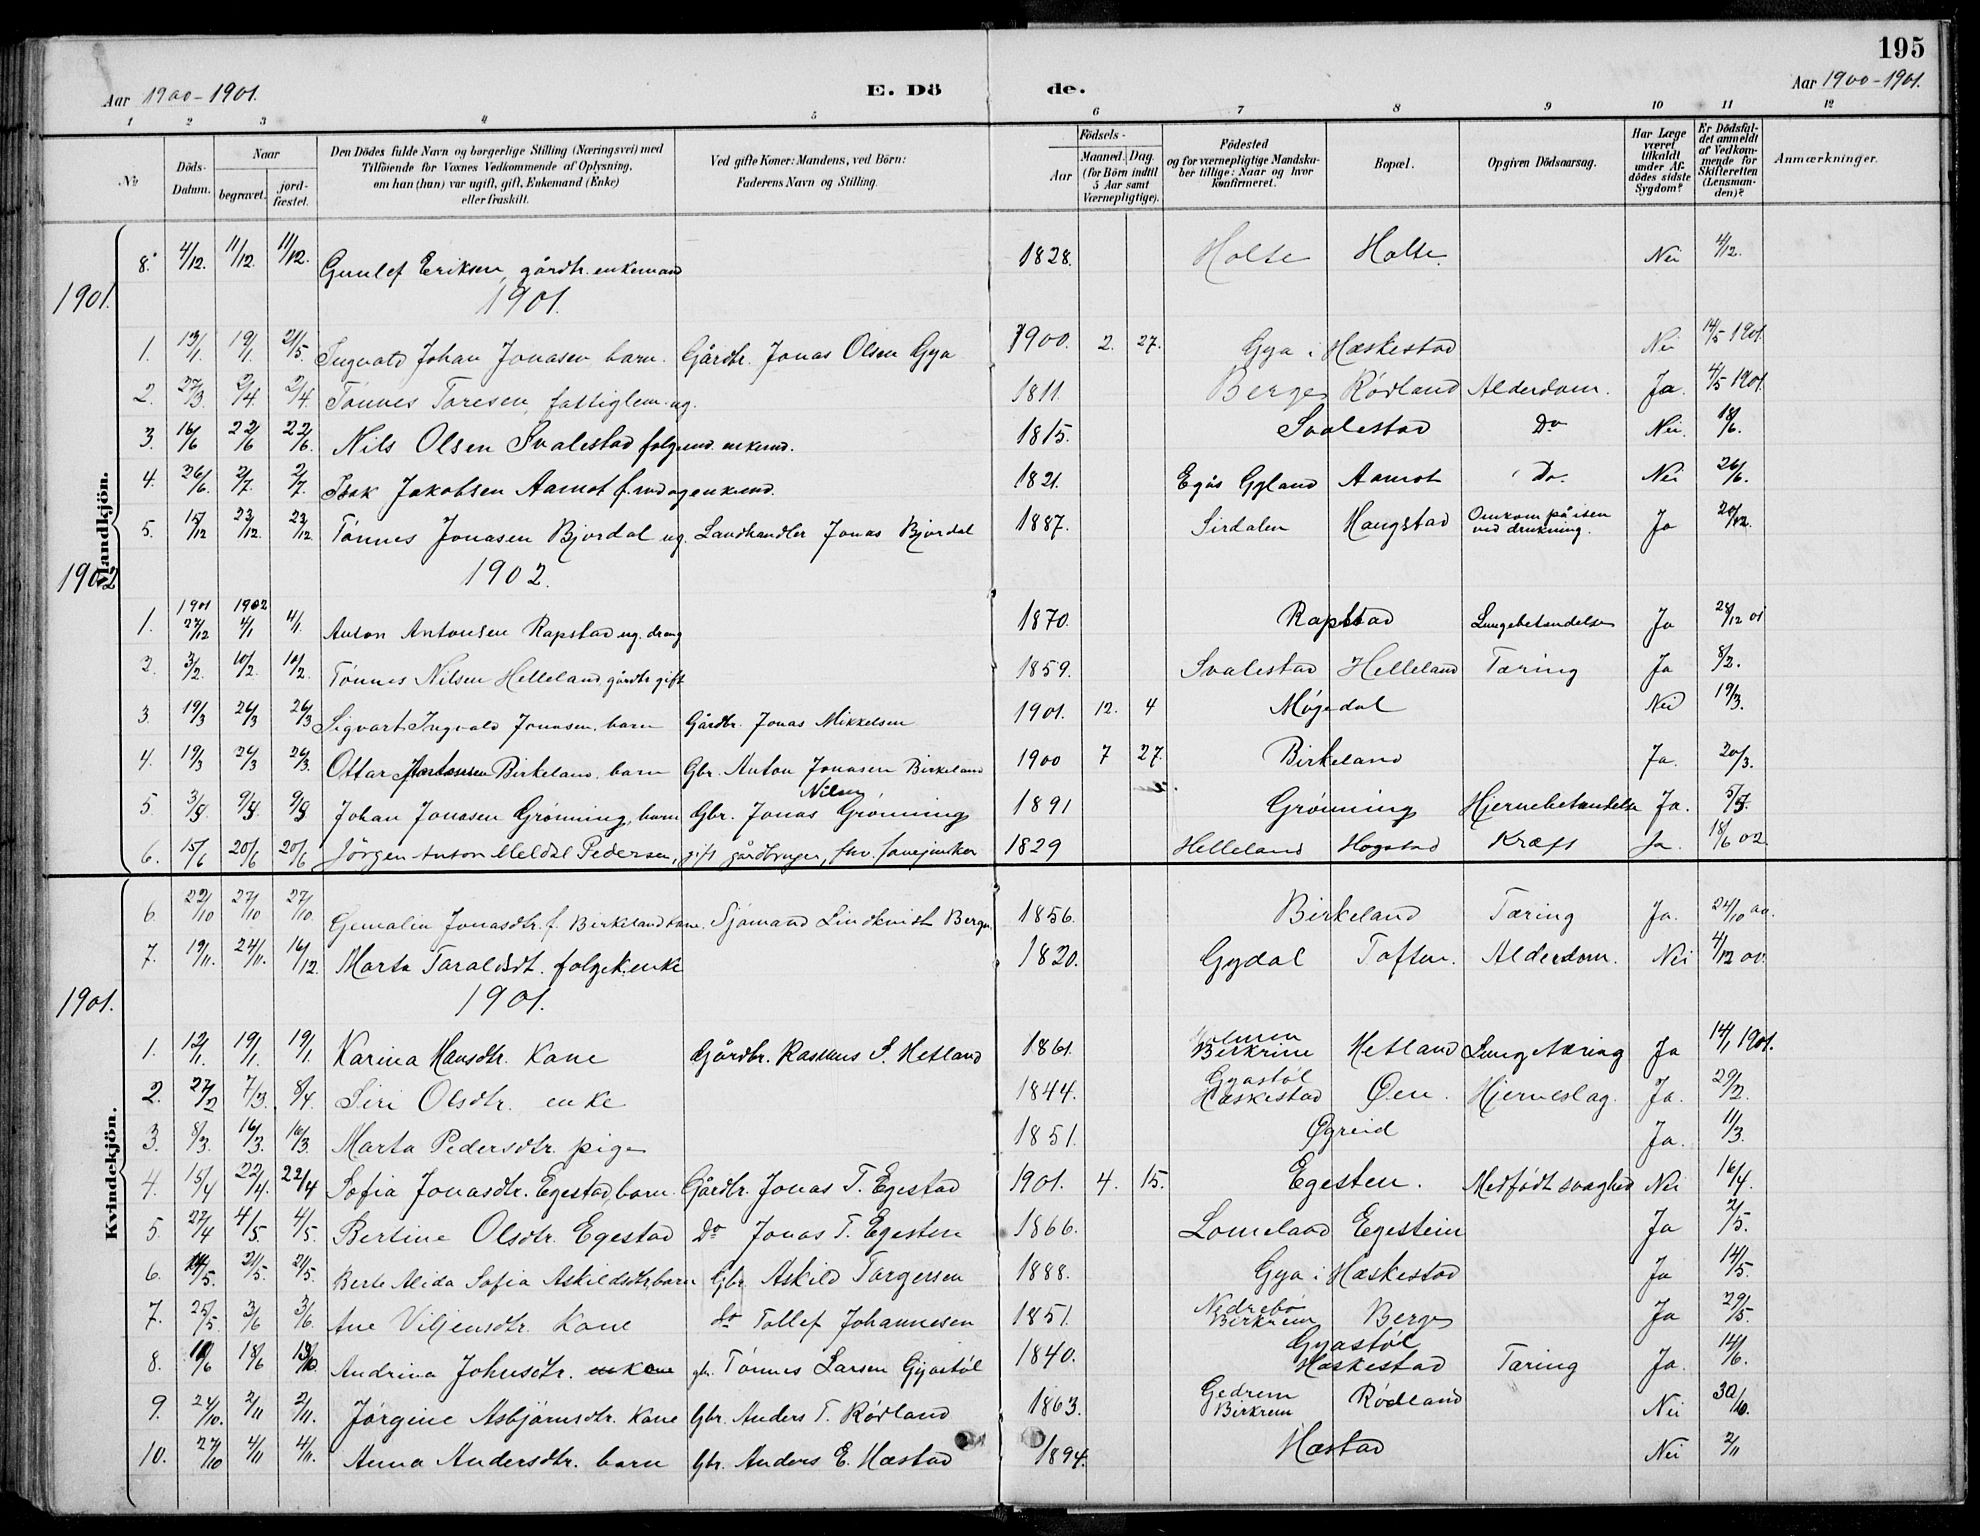 195
Aar 1900-1901. E. Dö de. Aar 1900-1901.
1 2 3 4 5 6 7 8 9 10 11 12
No. Döds-Datum. Naar begravet. jord-fæstet. Den Dödes fulde Navn og borgerlige Stilling (Næringsvei) med Tilföiende for Voxnes Vedkommende af Oplysning, om han (hun) var ugift, gift, Enkemand (Enke) eller fraskilt. Ved gifte Koner: Mandens, ved Börn: Faderens Navn og Stilling. Födsels- Aar Maaned. Dag. (for Börn indtil 5 Aar samt Værnepligtige). Födested og for værnepligtige Mandska-ber tillige: Naar og hvor konfirmeret. Bopæl. Opgiven Dödsaarsag. Har Læge været tilkaldt under Af-dödes sidste Sygdom? Er Dödsfal-det anmeldt af Vedkom-mende for Skifteretten (Lensman-den)? Anmærkninger.
Mandkjön.
8. 4/12. 11/12. 11/12. Gunlef Eriksen, gårdbr. enkemand 1828. Holte Holte. Nei 4/12.
1901. 1901.
1. 13/1. 19/1. 21/5. Ingvald Johan Jonasen, barn. Gårdbr. Jonas Olsen Gya 1900. 2. 27. Gya i Hæskestad Nei 14/5 1901.
2. 27/3. 2/4 2/4. Tønnes Toresen, fattiglem. ug. 1811. Berge Rødland Alderdom. Ja. 4/5 1901.
3. 16/6 22/6 22/6. Nils Olsen Svalestad folgemd. enkemd. 1815. Svalestad Do Nei. 18/6.
4. 26/6. 2/7. 2/7. Isak Jakobsen Aamot f.md og enkemd. 1821. Egås Gyland Aamot Do. Nei 26/6.
5. 15/12 23/12. 23/12. Tønnes Jonasen Bjordal ug. Landhandler Jonas Bjordal 1887. Sirdalen Haugstad Omkom på isen ved drukning. Ja 20/12.
1902 1902.
1. 1901 27/12 1902 4/1 4/1. Anton Antonsen Rapstad ug. dreng 1870. Rapstad Lungebetændelse Ja 28/12 01
2. 3/2. 10/2. 10/2. Tønnes Nilsen Helleland, gårdbr gift 1859. Svalestad Helleland Tæring Ja 8/2.
3. 19/3 26/3 26/3 Sigvart Ingvald Jonasen. barn Gårdbr. Jonas Mikkelsen 1901. 12. 4 Møgedal Nei 19/3.
4. 19/3 26/3 26/3. Ottar Antonsen Birkeland. barn Gbr. Anton Jonasen Birkeland 1900 7 27. Birkeland Ja. 20/3.
5. Johan Jonasen Grønning, barn Gbr. Jonas Nilsen Grønning 1891 Grønning Hjernebetændelse Ja. 5/5.
6. 15/6 20/6 20/6 Jörgen Anton Meldal Pedersen, gift gårdbruger, fhv. fanejunker 1829 Helleland Hogstad Kræft Ja. 18/6 02.
Kvindekjön.
6. 22/10 27/10 27/10. Gemalin Jonasdtr. f. Birkeland kone. Sjømand Lindkvist Bergen. 1856. Birkeland Tæring Ja. 24/10 00.
7. 19/11. 24/11. 16/12. Marta Taraldsdt. folgek. enke 1820. Gydal Toften. Alderdom. Nei 4/12 00.
1901. 1901.
1. 12/1. 19/1. 19/1. Karina Hansdtr. Kone Gårdbr. Rasmus S. Hetland 1861. Birkrim Hetland Lungetæring Ja 14/1 1901.
2. 27/2 7/3. 8/4. Siri Olsdtr. enke 1844. Gyastøl Hæskestad Øen. Hjerneslag. Ja. 29/2.
3. 8/3. 16/3. 16/3. Marta Pedersdtr. pige 1851. Øgreid Ja. 11/3.
4. 15/4 22/4. 22/4 Sofia Jonasdtr. Egestad barn. Gårdbr. Jonas T. Egestad 1901. 4. 15. Egesten. Medfødt svaghed Nei 16/4.
5. 27/4 4/5 4/5. Bertine Olsdtr. Egestad Do Jonas T. Egesten 1866. Lomeland Egestein Ja 2/5.
6. 14/5. 21/5. 21/5. Berte Alida Sofia Askildsdtr, barn Gbr. Askild Torgersen 1888. Gya i Hæskestad Ja 14/5.
7. 25/5. 3/6 3/6. Ane Viljensdtr. Kone do Tollef Johannesen 1851. Nedrebø Birkrem Berge Ja 29/5.
8. 18/6 Andrina Johnsdtr. kone gbr. Tønnes Larsen Gyastøl 1840. Gyastøl Hæskestad Tæring Ja. 14/6.
9. 24/10. 2/11 2/11. Jørgine Asbjørnsdtr. Kone Gbr. Anders T. Rødland 1863. Gedrem Birkrem Rødland Nei 30/10.
10. 27/10 4/11 4/11. Anna Andersdtr. barn Gbr. Anders E. Hæstad 1894. Hæstad Nei 2/11